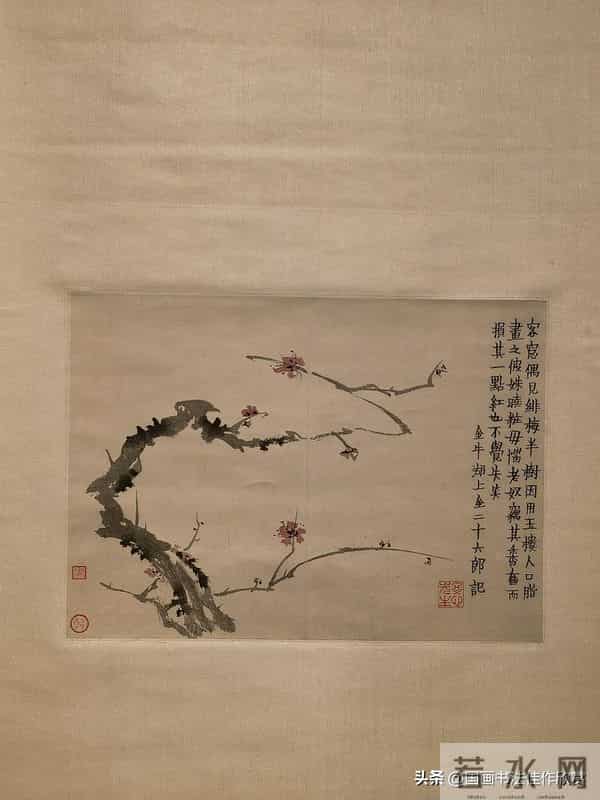 客窓偶見緋梅半樹因用玉樓人口脂
畫之彼姝曉粧毋惱老奴竊其香奩而
損其一點紅也不覺失笑
金牛湖上金二十六郎記
若水网
头条 @国画书法佳作欣赏